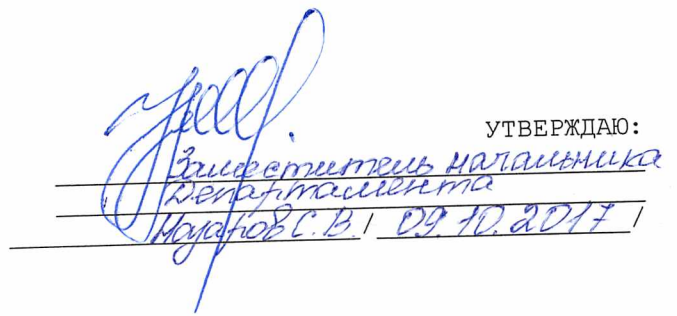 УТВЕРЖДАЮ:
Заместитель начальника
Департамента
Назаров С.В. / 09.10.2017 /